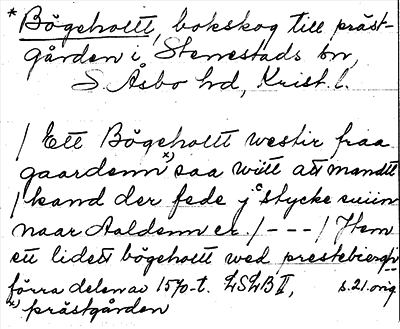 * Bögeholtt, bokskog till präst-
gården i Stenestads sn,
S. Åsbo hd, Krist. l.
/ Ett Bögeholtt westir fraa
gaardenn x) saa witt att mandt
/ kand der fede j° stycke suiin
naar Aaldenn er. / - - - / Item
ett lidett bögeholtt wed prestebierghit
förra delen av 1570-t. LSLB II, s. 21. orig
x) prästgården